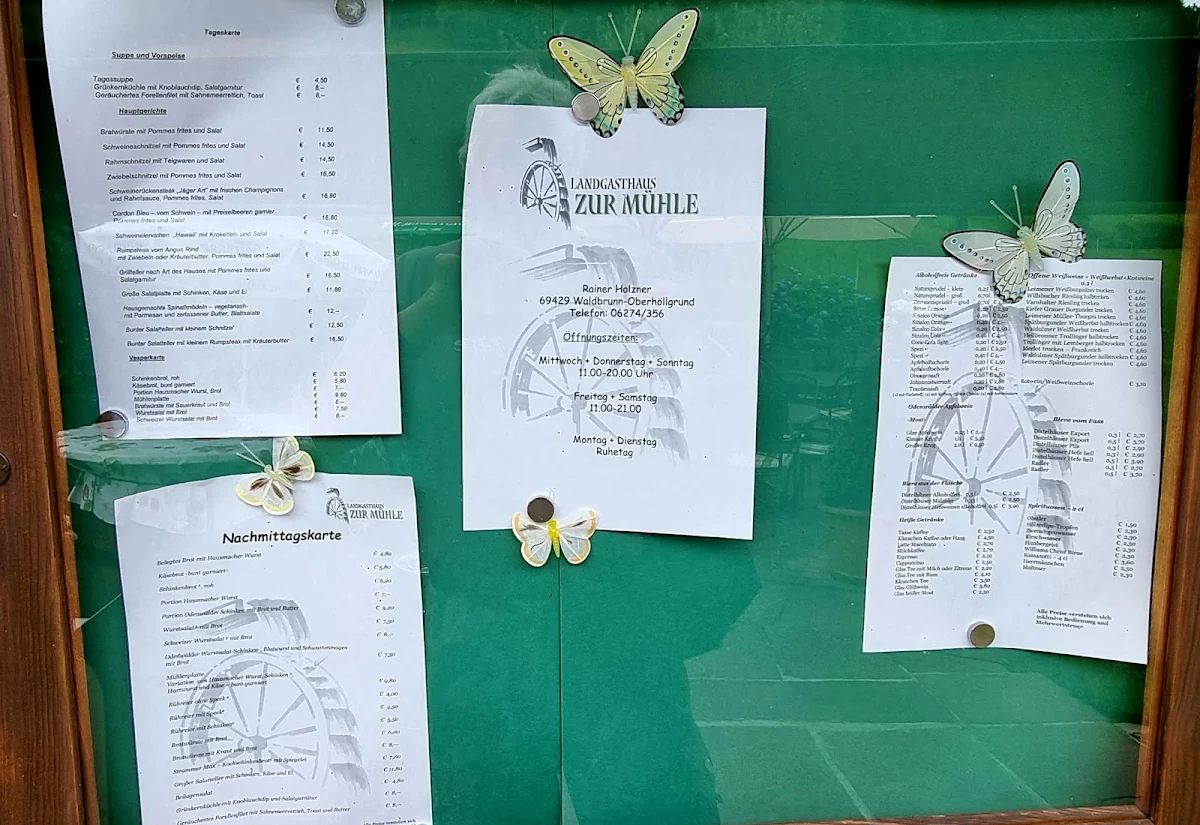 Tageskarte
Suppe und Vorspeise
Tagessuppe € 4,50
Grünkernküchle mit Knoblauchdip, Salatgarnitur € 8,--
Geräuchertes Forellenfilet mit Sahnemeerrettich, Toast € 8,--
Hauptgerichte
Bratwürste mit Pommes frites und Salat € 11,50
Schweineschnitzel mit Pommes frites und Salat € 14,50
Rahmschnitzel mit Teigwaren und Salat € 14,50
Zwiebelschnitzel mit Pommes frites und Salat € 16,50
Schweinerückensteak „Jäger Art" mit frischen Champignons
und Rahmsauce, Pommes frites, Salat € 16,80
Cordon Bleu – vom Schwein – mit Preiselbeeren garnier
Pommes frites und Salat € 16,80
Schweinelendchen „Hawaii" mit Kroketten und Salat € 17,20
Rumpsteak vom Angus Rind
mit Zwiebeln oder Kräuterbutter, Pommes frites und Salat € 22,50
Grillteller nach Art des Hauses mit Pommes frites und
Salatgarnitur € 16,50
Große Salatplatte mit Schinken, Käse und Ei € 11,80
Hausgemachte Spinatknödeln – vegetarisch-
mit Parmesan und zerlassener Butter, Blattsalate € 12,--
Bunter Salatteller mit kleinem Schnitzel € 12,50
Bunter Salatteller mit kleinem Rumpsteak mit Kräuterbutter € 16,50
Vesperkarte
Schinkenbrot, roh € 6,20
Käsebrot, bunt garniert € 5,80
Portion Hausmacher Wurst, Brot € 7,--
Mühlenplatte € 9,80
Bratwürste mit Sauerkraut und Brot € 8,--
Wurstsalat mit Brot € 7,50
Schweizer Wurstsalat mit Brot € 8,--
LANDGASTHAUS
ZUR MÜHLE
Rainer Holzner
69429 Waldbrunn-Oberhöllgrund
Telefon: 06274/356
Öffnungszeiten:
Mittwoch + Donnerstag + Sonntag
11.00-20.00 Uhr
Freitag + Samstag
11.00-21.00
Montag + Dienstag
Ruhetag
LANDGASTHAUS
ZUR MÜHLE
Nachmittagskarte
Belegtes Brot mit Hausmacher Wurst € 4,80
Käsebrot -bunt garniert- € 5,80
Schinkenbrot , roh € 6,20
Portion Hausmacher Wurst € 7,--
Portion Odenwälder Schinken mit Brot und Butter € 9,20
Wurstsalat mit Brot € 7,50
Schweizer Wurstsalat mit Brot € 8,--
Odenwälder Wurstsalat-Schinken-, Blutwurst und Schwartenmagen-
mit Brot € 7,50
Mühlenplatte
Variation vom Hausmacher Wurst, Schinken ,
Hartwurst und Käse – bunt garniert € 9,80
Rühreier ohne Speck € 4,00
Rühreier mit Speck € 4,50
Rühreier mit Schinken € 5,50
Bratwürste mit Brot € 6,00
Bratwürste mit Kraut und Brot € 8,--
Strammer Max – Kochschinkenbrot mit Spiegelei € 7,80
Großer Salatteller mit Schinken, Käse und Ei € 11,80
Beilagensalat € 4,80
Grünkernküchle mit Knoblauchdip und Salatgarnitur € 8,--
Geräuchertes Forellenfilet mit Sahnemeerrettich, Toast und Butter € 8,--
Alle Preise verstehen sich
Alkoholfreie Getränke
Natursprudel - klein
Natursprudel - groß
Bitter Lemon
Sinalco Orange
Sinalco Cola
Coca-Cola light
Spezi
Spezi
Apfelsaftschorle
Apfelsaftschorle
Orangensaft
Johannisbeersaft
Traubensaft
Odenwälder Apfelwein
-Most-
Glas Apfelwein
Kleiner Krug
Großer Krug
Biere aus der Flasche
Distelhäuser Alkoholfrei
Distelhäuser Malzbier
Distelhäuser Hefeweizen alkoholfrei 0,5l € 3,00
Heiße Getränke
Tasse Kaffee € 2,50
Kännchen Kaffee oder Haag € 4,50
Latte Macchiato € 2,70
Milchkaffee € 2,70
Espresso € 2,10
Cappuccino € 2,50
Glas Tee mit Milch oder Zitrone € 2,20
Glas Tee mit Rum € 4,10
Kännchen Tee € 3,50
Glas Glühwein € 3,80
Glas heißer Most € 2,50
Offene Weißweine + Weißherbst+Rotweine
0,2 l
Leimener Weißburgunder trocken € 4,60
Willsbacher Riesling halbtrocken € 4,60
Varnhalter Riesling trocken € 4,60
Kiefer Grauer Burgunder trocken € 4,60
Leimener Müller-Thurgau trocken € 4,60
Spätburgunder Weißherbst halbtrocken € 4,60
Waldulmer Weißherbst trocken € 4,60
Heilbronner Trollinger halbtrocken € 4,60
Trollinger mit Lemberger halbtrocken € 4,60
Merlot trocken – Frankreich € 4,60
Waldulmer Spätburgunder halbtrocken € 4,60
Leimener Spätburgunder trocken € 4,60
Rotwein/Weißweinschorle € 3,10
Biere vom Fass
Distelhäuser Export 0,3 l € 2,70
Distelhäuser Export 0,5 l € 3,70
Distelhäuser Pils 0,3 l € 2,90
Distelhäuser Hefe hell 0,3 l € 2,90
Distelhäuser Hefe hell 0,5 l € 3,90
Radler 0,3 l € 2,70
Radler 0,5 l € 3,70
Spirituosen – 2 cl
Obstler € 1,50
Kirschwasser € 2,30
Himbergeist € 2,30
Williams Christ Birne € 2,30
Ramazotti – 4 cl
Malteser € 2,30
Alle Preise verstehen sich
inklusive Bedienung und
Mehrwertsteuer